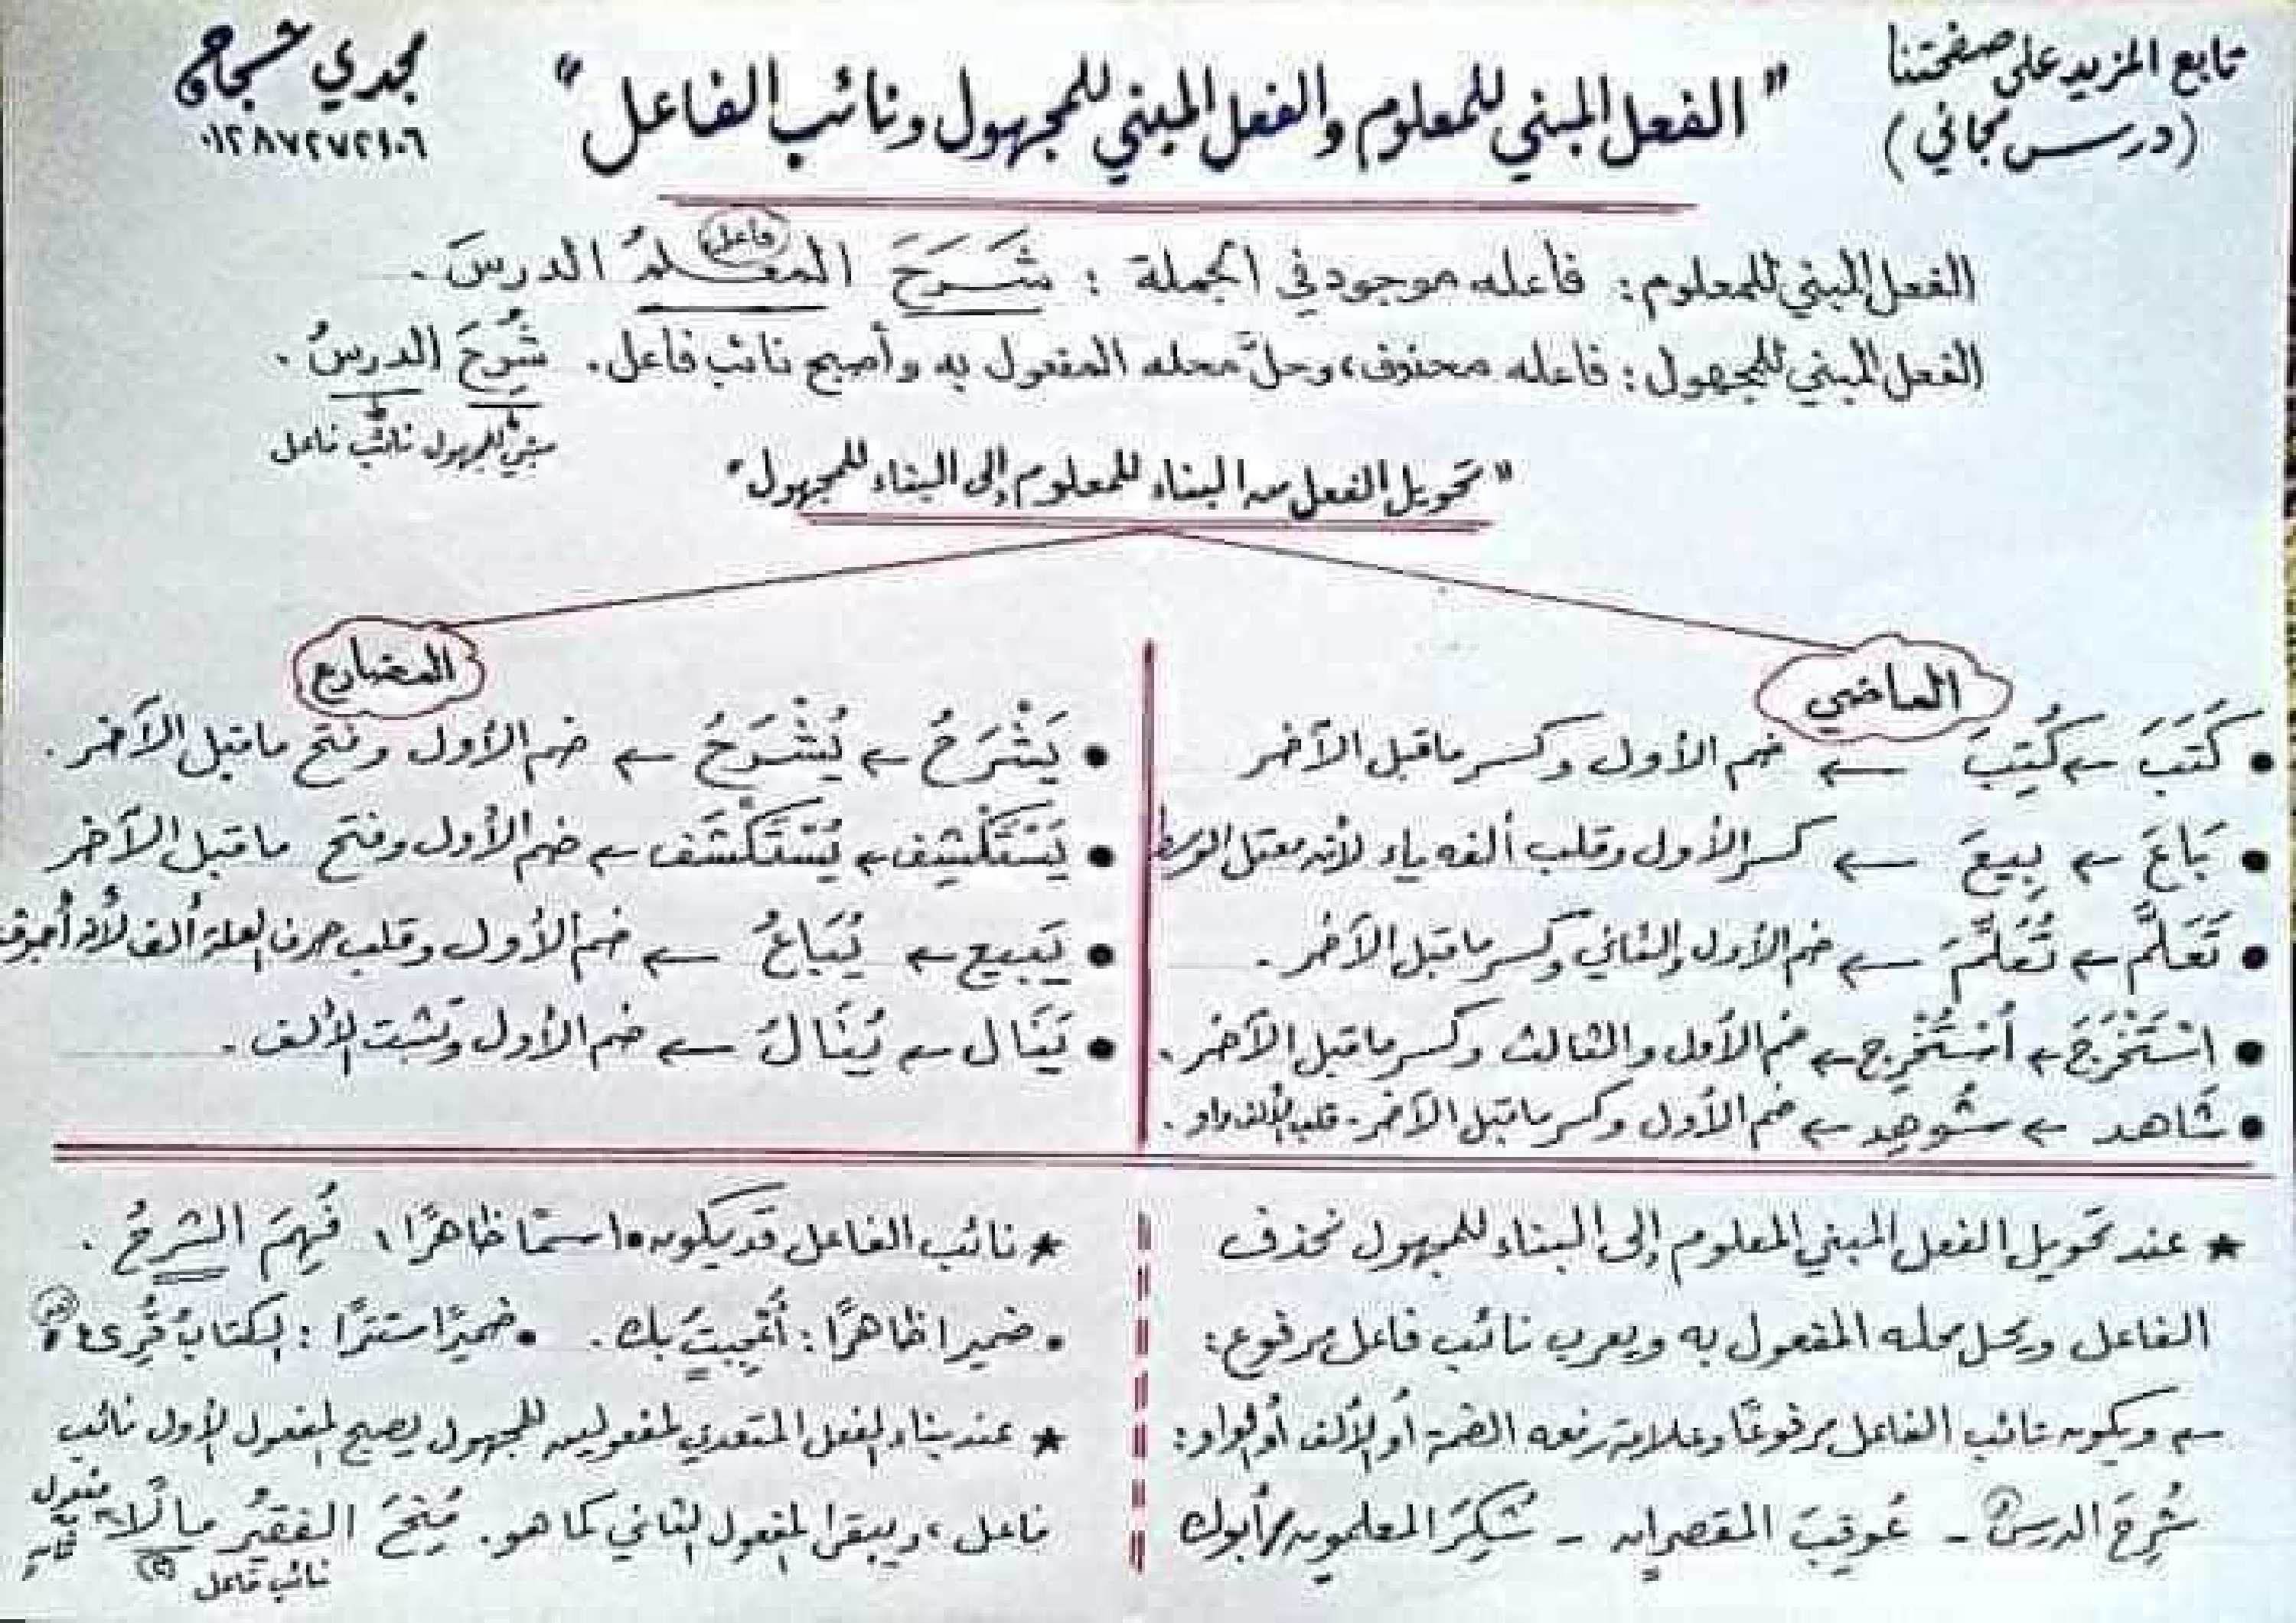 تابع المزيد على صفحتنا
(درس مجاني)
" الفعل المبني للمعلوم والفعل المبني للمجهول ونائب الفاعل "
مجدي
الفعل المبني للمعلوم: فاعله موجود في الجملة : شَرَحَ المعلمُ الدرسَ .
فاعل
الفعل المبني للمجهول: فاعله محذوف، وحلَّ محله المفعول به وأصبح نائب فاعل. شُرِحَ الدرسُ .
مبني للمجهول نائب فاعل
" تحويل الفعل من البناء للمعلوم إلى البناء للمجهول "
الماضي
• كَتَبَ ← كُتِبَ ← ضم الأول وكسر ماقبل الآخر
• بَاعَ ← بِيعَ ← كسر الأول وقلب ألفه ياء لأنه معتل الوسط
• تَعَلَّم ← تُعُلِّمَ ← ضم الأول والثاني وكسر ماقبل الآخر .
• اسْتَخْرَجَ ← اُسْتُخْرِج ← ضم الأول والثالث وكسر ماقبل الآخر .
• شَاهد ← شُوهِد ← ضم الأول وكسر ماقبل الآخر - قلب الألف واو .
المضارع
• يَشْرَحُ ← يُشْرَحُ ← ضم الأول وفتح ماقبل الآخر .
• يَسْتَكْشِف ← يُسْتَكْشَف ← ضم الأول وفتح ماقبل الآخر
• يَبيع ← يُبَاعُ ← ضم الأول وقلب حرف العلة ألف لأنه أجوف
• يَنَال ← يُنَالُ ← ضم الأول وتثبت الألف .
★ عند تحويل الفعل المبني المعلوم إلى البناء للمجهول نحذف
الفاعل ويحل محله المفعول به ويعرب نائب فاعل مرفوع :
← ويكون نائب الفاعل مرفوعًا وعلامة رفعه الضمة أو الألف أو الواو :
شُرِحَ الدرسُ - عُوقِبَ المقصران - شُكِرَ المعلمون / أبوك
★ نائب الفاعل قد يكون • اسمًا ظاهرًا : فُهِمَ الشرحُ .
• ضميرا ظاهرًا : أُعْجِبتُ بك . • ضميرًا مستترًا : الكتابُ قُرِئ
هو
★ عند بناء الفعل المتعدي لمفعولين للمجهول يصبح المفعول الأول نائب
فاعل ، ويبقى المفعول الثاني كما هو . مُنِحَ الفقيرُ مالًا
مفعول به ثانٍ
نائب فاعل